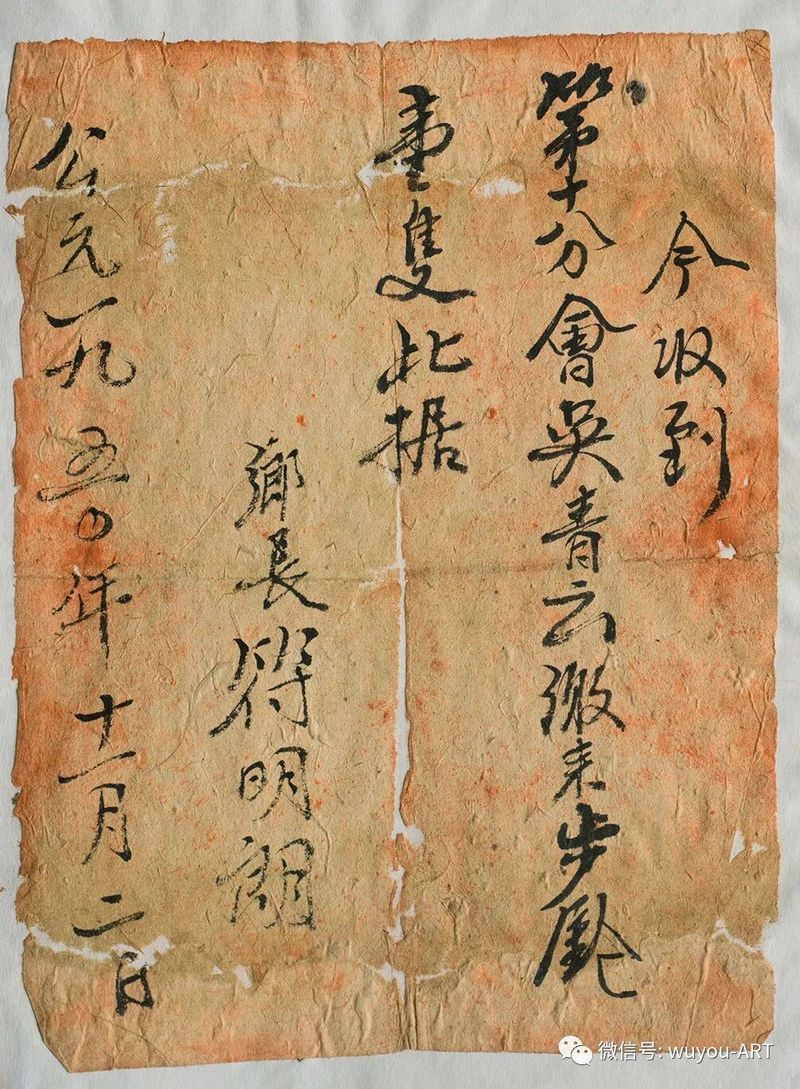 今收到
第十分會吳青云繳来步
壹隻此据
鄉長符明朗
公元一九五〇年十一月二日
微信号: wuyou-ART